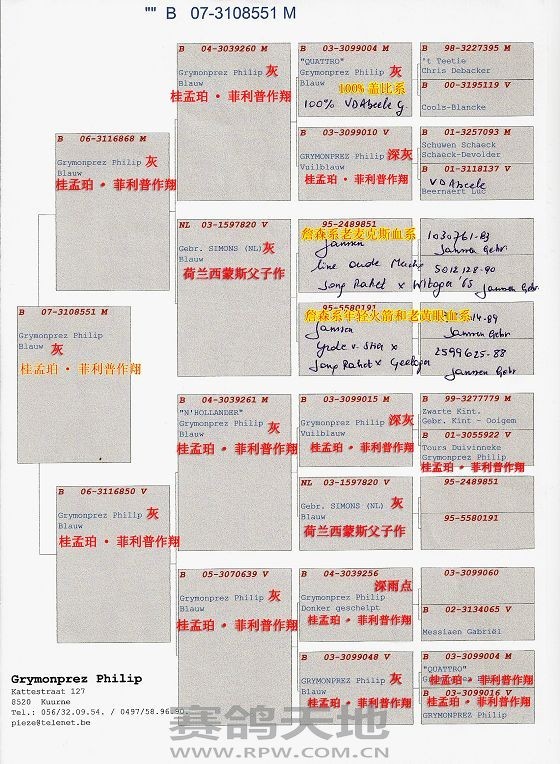 "" B 07-3108551 M
B 07-3108551 M
Grymonprez Philip
Blauw 灰
桂孟珀·菲利普作翔
B 06-3116868 M
Grymonprez Philip 灰
Blauw
桂孟珀·菲利普作翔
B 06-3116850 V
Grymonprez Philip 灰
Blauw
桂孟珀·菲利普作翔
B 04-3039260 M
Grymonprez Philip 灰
Blauw
桂孟珀·菲利普作翔
NL 03-1597820 V
Gebr. SIMONS (NL) 灰
Blauw
荷兰西蒙斯父子作
B 04-3039261 M
"N'HOLLANDER"
Grymonprez Philip 灰
Blauw
桂孟珀·菲利普作翔
B 05-3070639 V
Grymonprez Philip 灰
Blauw
桂孟珀·菲利普作翔
B 03-3099004 M
"QUATTRO"
Grymonprez Philip 灰
Blauw
100%盖比系
100% VDAbeele G.
B 03-3099010 V
GRYMONPREZ Philip 深灰
Vuilblauw
桂孟珀·菲利普作翔
95-2489851
詹森系老麦克斯血系
Janssen
line oude
Jong Raket x Witoger '65
95-5580191
詹森系年轻火箭和老黄眼血系
Janssen
Jong Raket x Geeloger
B 03-3099015 M
Grymonprez Philip 深灰
Vuilblauw
桂孟珀·菲利普作翔
NL 03-1597820 V
Gebr. SIMONS (NL) 灰
Blauw
荷兰西蒙斯父子作
B 04-3039256 M
深雨点
Grymonprez Philip
Donker geschelpt
桂孟珀·菲利普作翔
B 03-3099048 V
GRYMONPREZ Philip 灰
Blauw
桂孟珀·菲利普作翔
B 98-3227395 M
't Teetie
Chris Debacker
B 00-3195119 V
Cools-Blancke
B 01-3257093 M
Schuwen Schaeck
Schaeck-Devolder
B 01-3118137 V
VDAbeele
Beernaert Luc
1030761-83
Janssen Gebr.
5012128-90
Janssen Gebr.
14-89
Janssen Gebr.
2599625-88
Janssen Gebr.
B 99-3277779 M
Zwarte Kint.
Gebr. Kint - Ooigem
B 01-3055922 V
Tours Duivinneke
Grymonprez Philip
桂孟珀·菲利普作翔
95-2489851
95-5580191
03-3099060
B 02-3134065 V
Messiaen Gabriël
B 03-3099004 M
"QUATTRO"
桂孟珀·菲利普作翔
B 03-3099016 V
桂孟珀·菲利普作翔
GRYMONPREZ Philip
Grymonprez Philip
Kattestraat 127
8520 Kuurne
Tel.: 056/32.09.54. / 0497/58.96.90.
pieze@telenet.be
赛鸽天地
WWW.RPW.COM.CN